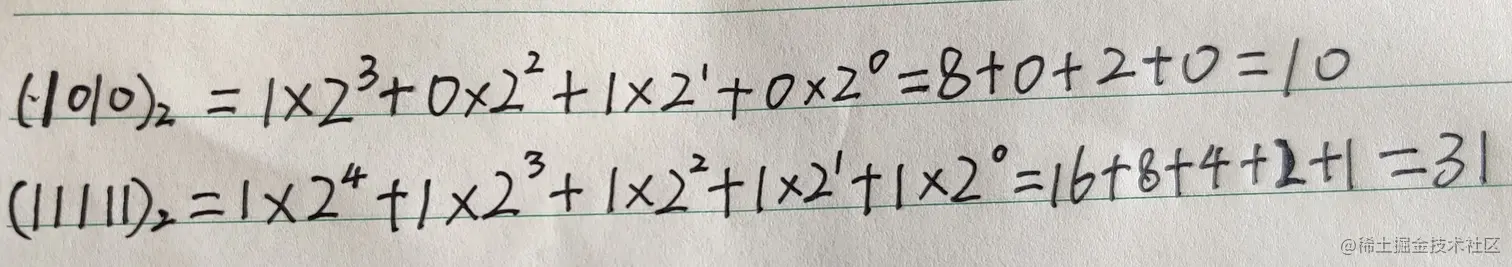 (1010)₂ = 1×2³+0×2²+1×2¹+0×2⁰=8+0+2+0=10
(11111)₂=1×2⁴+1×2³+1×2²+1×2¹+1×2⁰=16+8+4+2+1=31
@稀土掘金技术社区